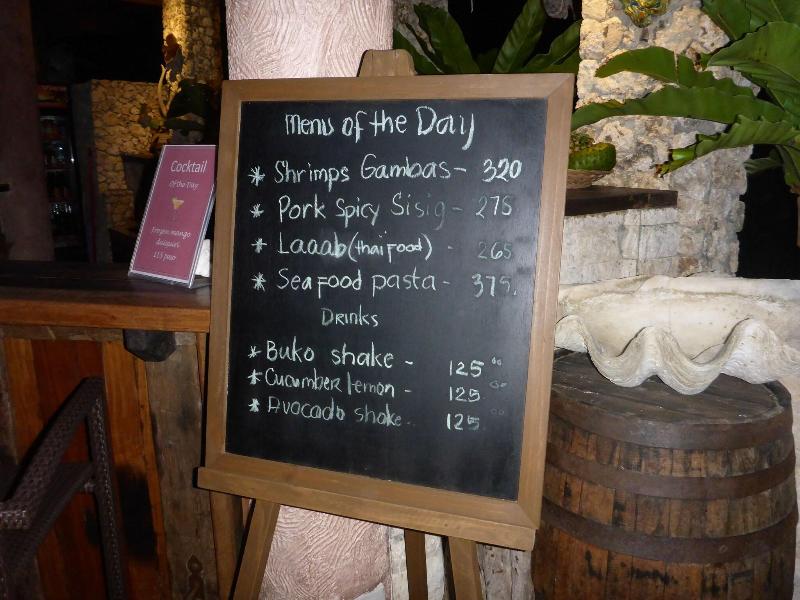 Cocktail
Of the Day
Frozen mango
daiquiri
115 peso
Menu of the Day
* Shrimps Gambas - 320
* Pork Spicy Sisig - 275
* Laaab (thai food) - 265
* Seafood pasta - 375.
Drinks
* Buko shake - 125 00
* Cucumber lemon - 125 00
* Avocado shake - 125 00